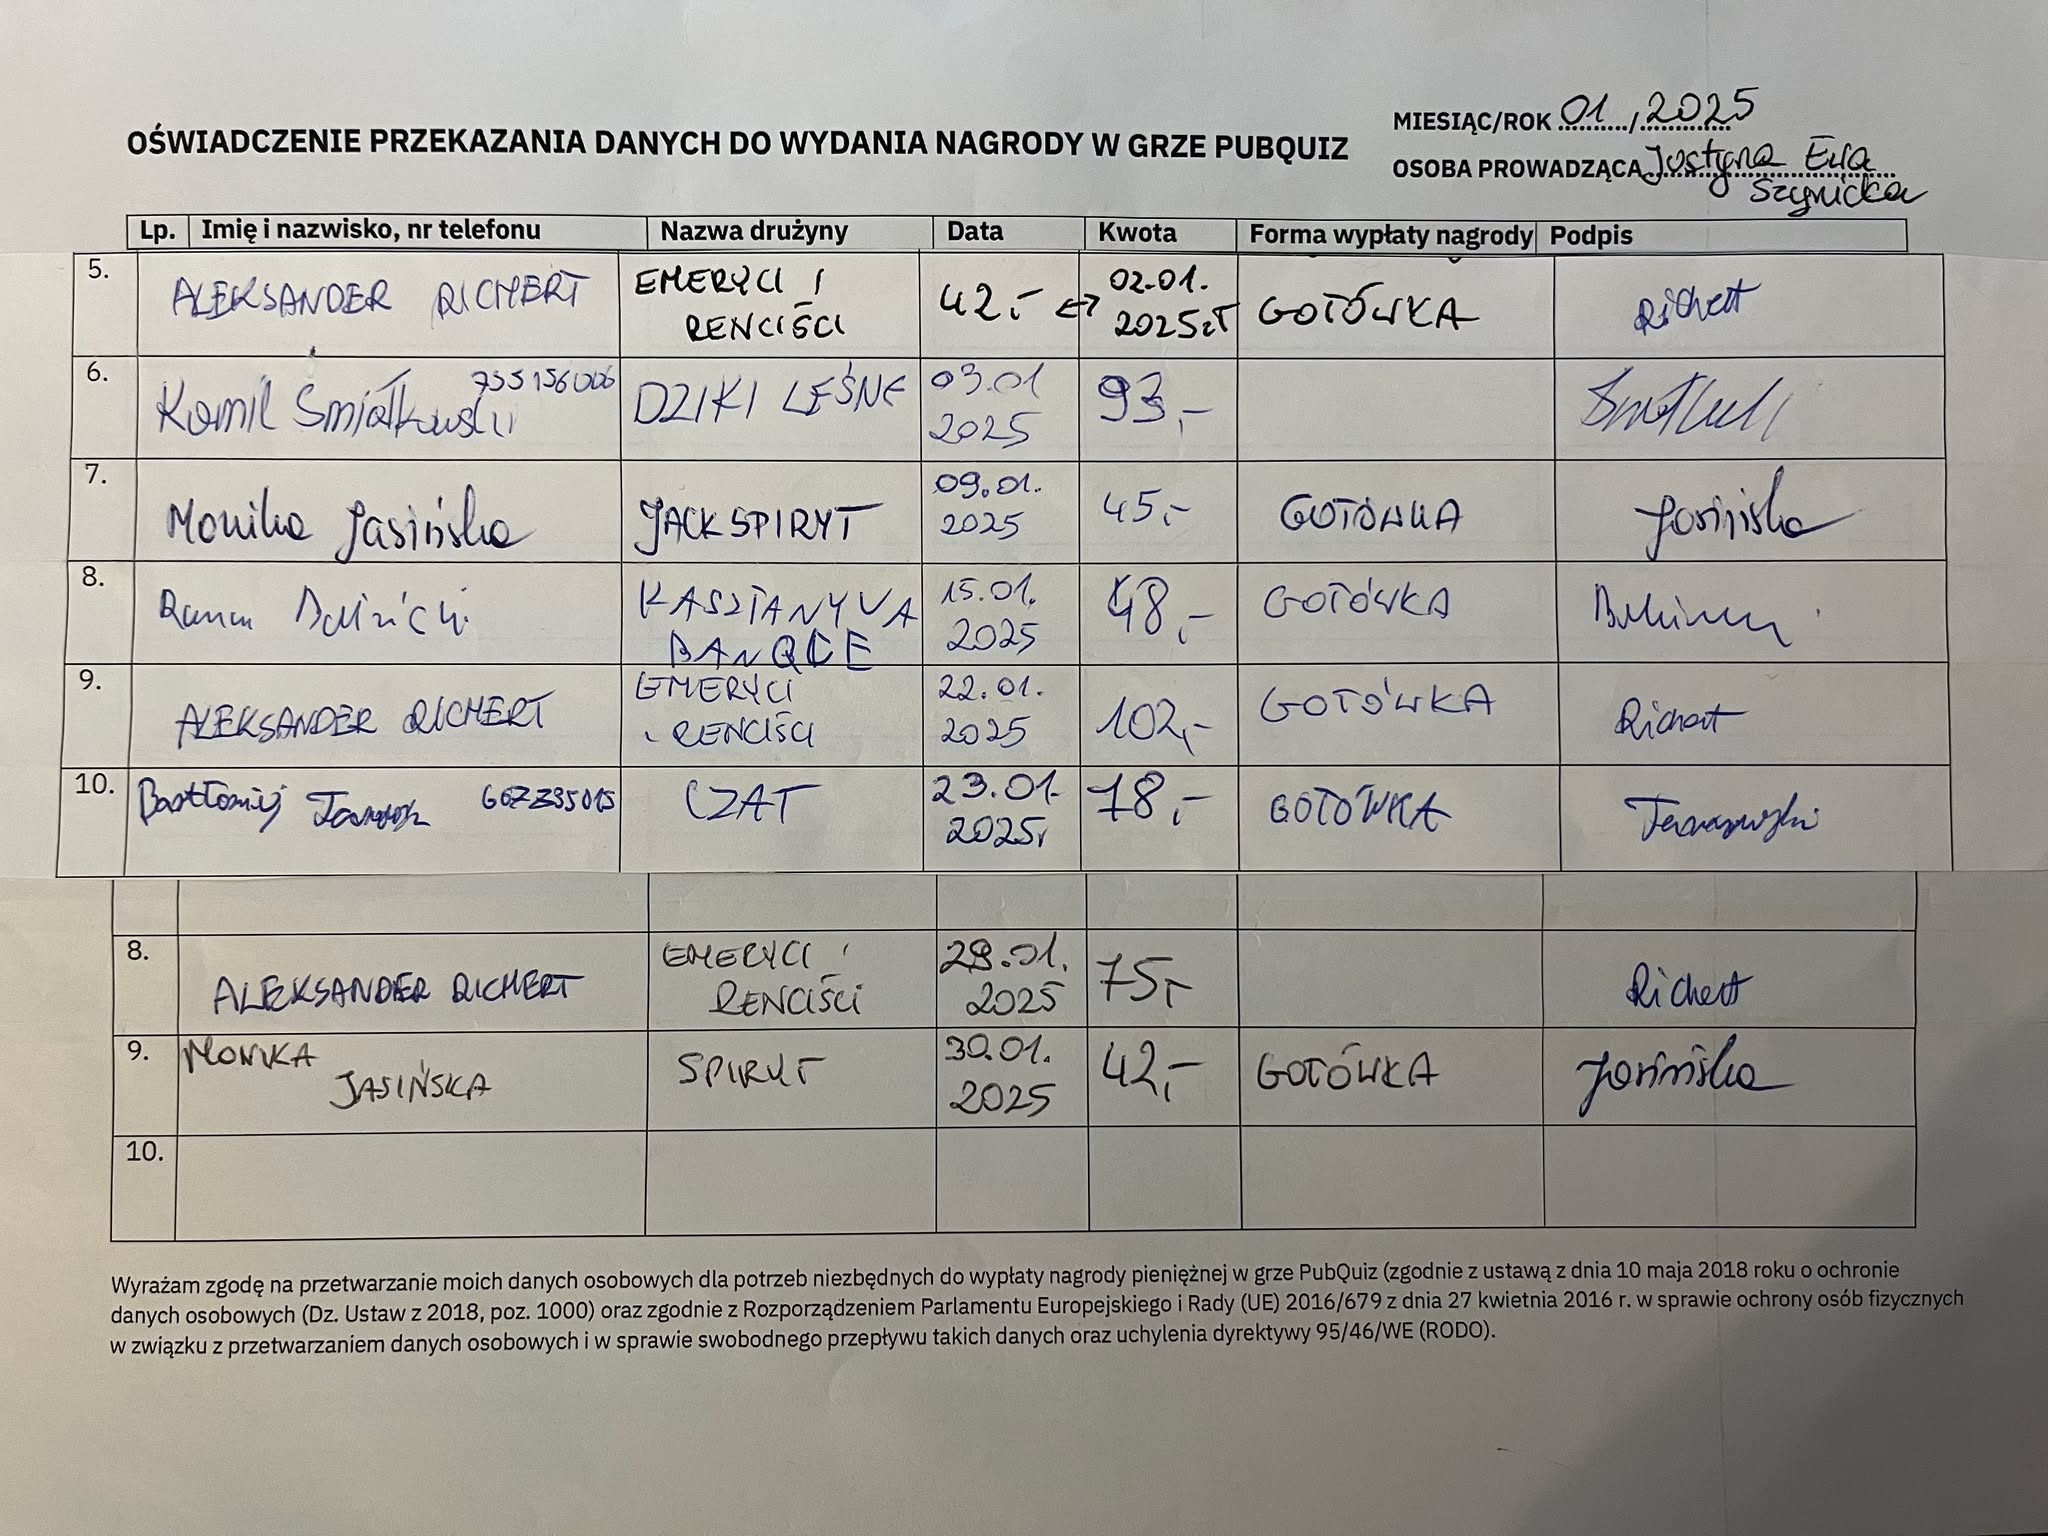 MIESIĄC/ROK 01/2025
OŚWIADCZENIE PRZEKAZANIA DANYCH DO WYDANIA NAGRODY W GRZE PUBQUIZ
OSOBA PROWADZĄCA Justyna Ewa
Szynicka
Lp. Imię i nazwisko, nr telefonu Nazwa drużyny Data Kwota Forma wypłaty nagrody Podpis
5. ALEKSANDER RICHERT EMERYCI I RENCIŚCI 42,- <-> 02.01. 2025r GOTÓWKA Richert
6. Kamil Śmiałkowski 755156006 DZIKI LEŚNE 03.01 2025 93,-
7. Monika Jasińska JACKSPIRYT 09.01. 2025 45,- GOTÓWKA Jasińska
8. KASZTANY VA BANQUE 15.01. 2025 48,- GOTÓWKA
9. ALEKSANDER RICHERT EMERYCI I RENCIŚCI 22.01. 2025 102,- GOTÓWKA Richert
10. Bartłomiej CZAT 23.01. 2025r 78,- GOTÓWKA
8. ALEKSANDER RICHERT EMERYCI I RENCIŚCI 29.01. 2025 75,- Richert
9. MONIKA JASIŃSKA SPIRYT 30.01. 2025 42,- GOTÓWKA Jasińska
10.
Wyrażam zgodę na przetwarzanie moich danych osobowych dla potrzeb niezbędnych do wypłaty nagrody pieniężnej w grze PubQuiz (zgodnie z ustawą z dnia 10 maja 2018 roku o ochronie
danych osobowych (Dz. Ustaw z 2018, poz. 1000) oraz zgodnie z Rozporządzeniem Parlamentu Europejskiego i Rady (UE) 2016/679 z dnia 27 kwietnia 2016 r. w sprawie ochrony osób fizycznych
w związku z przetwarzaniem danych osobowych i w sprawie swobodnego przepływu takich danych oraz uchylenia dyrektywy 95/46/WE (RODO).